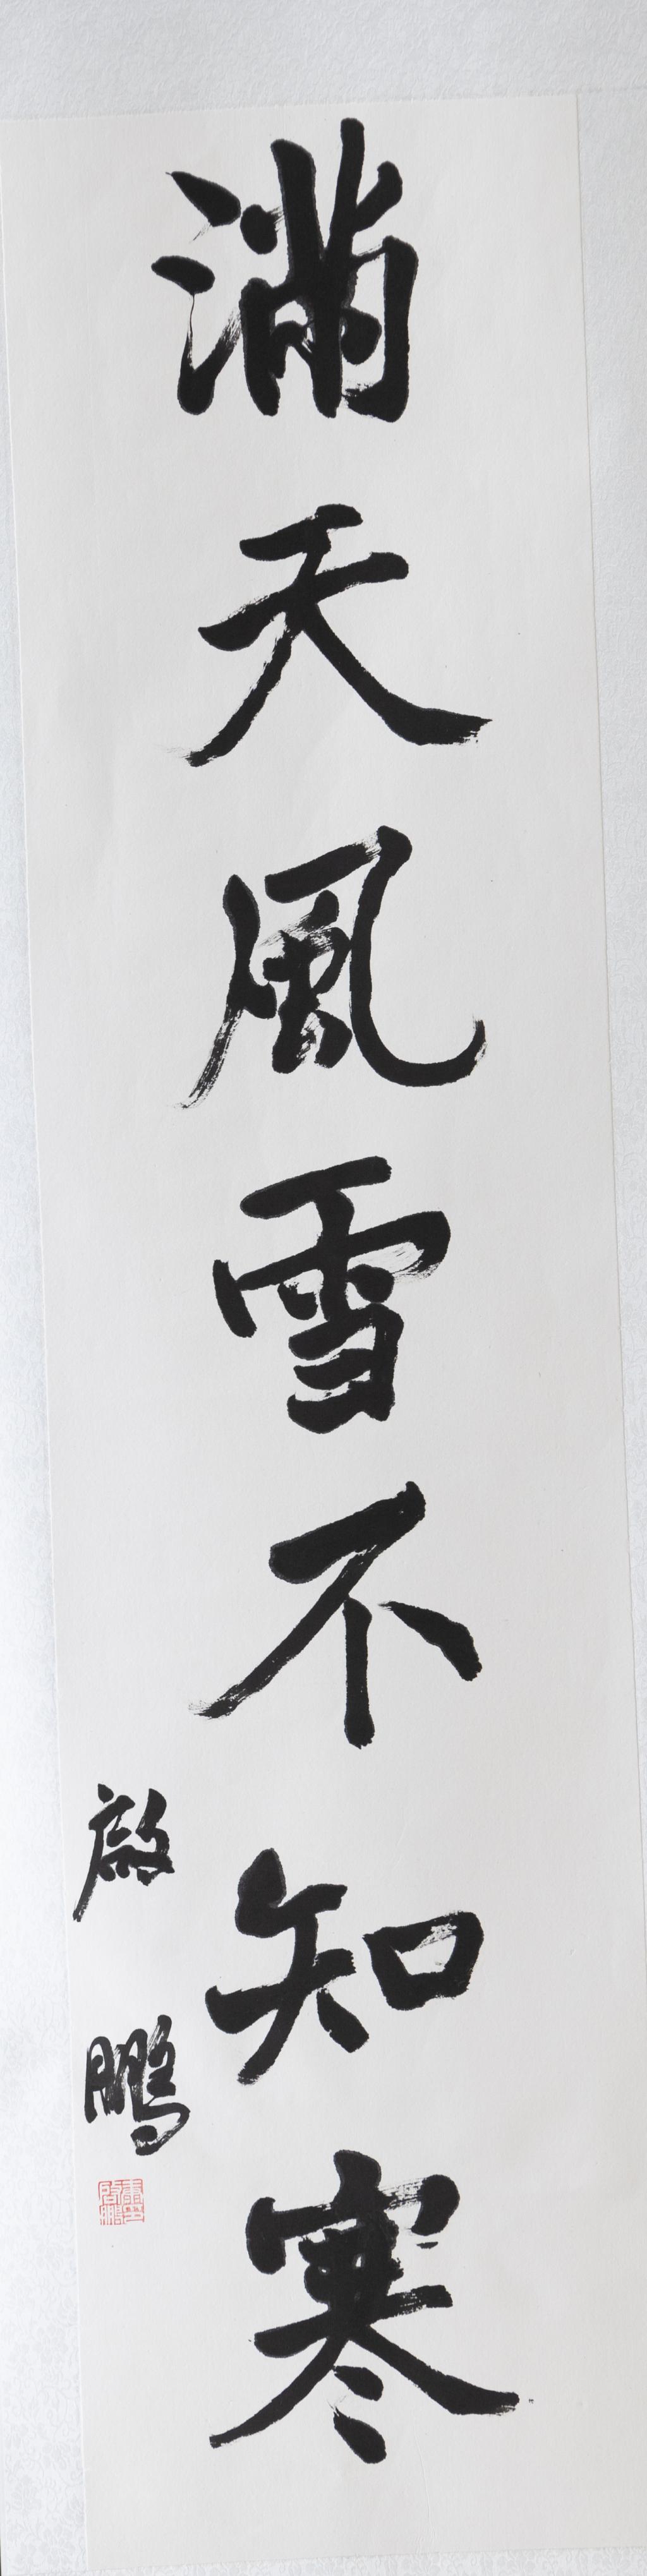 满天風雪不知寒
啟鵬